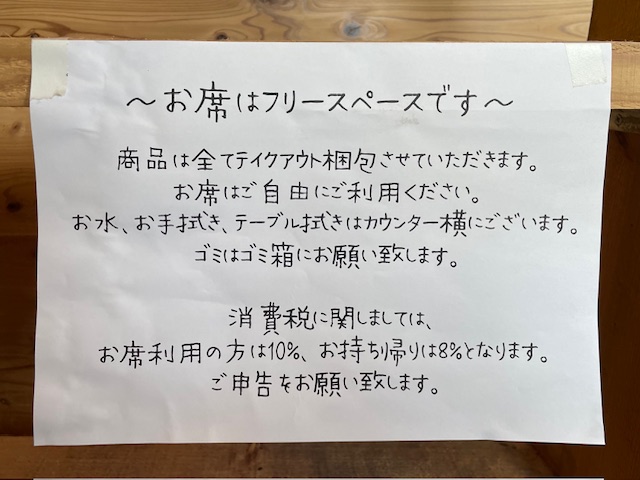 ～お席はフリースペースです～
商品は全てテイクアウト梱包させていただきます。
お席はご自由にご利用ください。
お水、お手拭き、テーブル拭きはカウンター横にございます。
ゴミはゴミ箱にお願い致します。
消費税に関しましては、
お席利用の方は10%、お持ち帰りは8%となります。
ご申告をお願い致します。